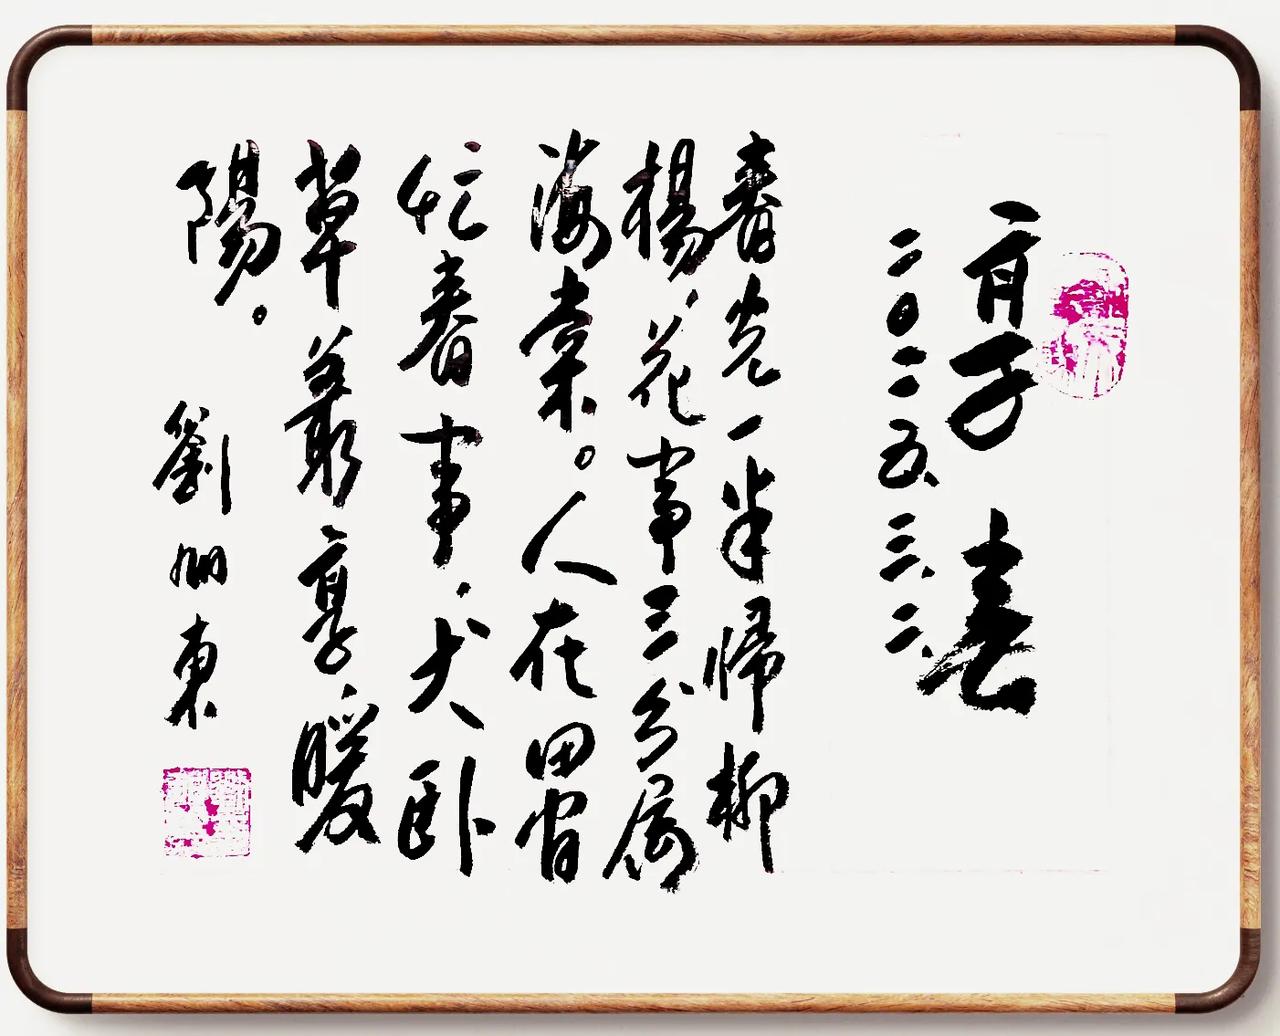 享春
二0二五、三、二、
春光一半帰柳
楊、花事三分属
海棠。人在田間
忙春事、犬卧
草叢享暖
陽。
劉旭東